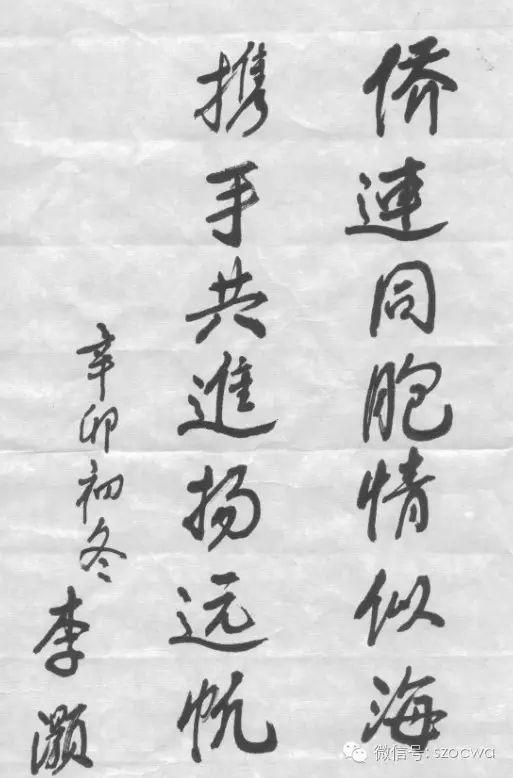 侨連同胞情似海
携手共進扬远帆
辛卯初冬
李灏
微信号: szocwa